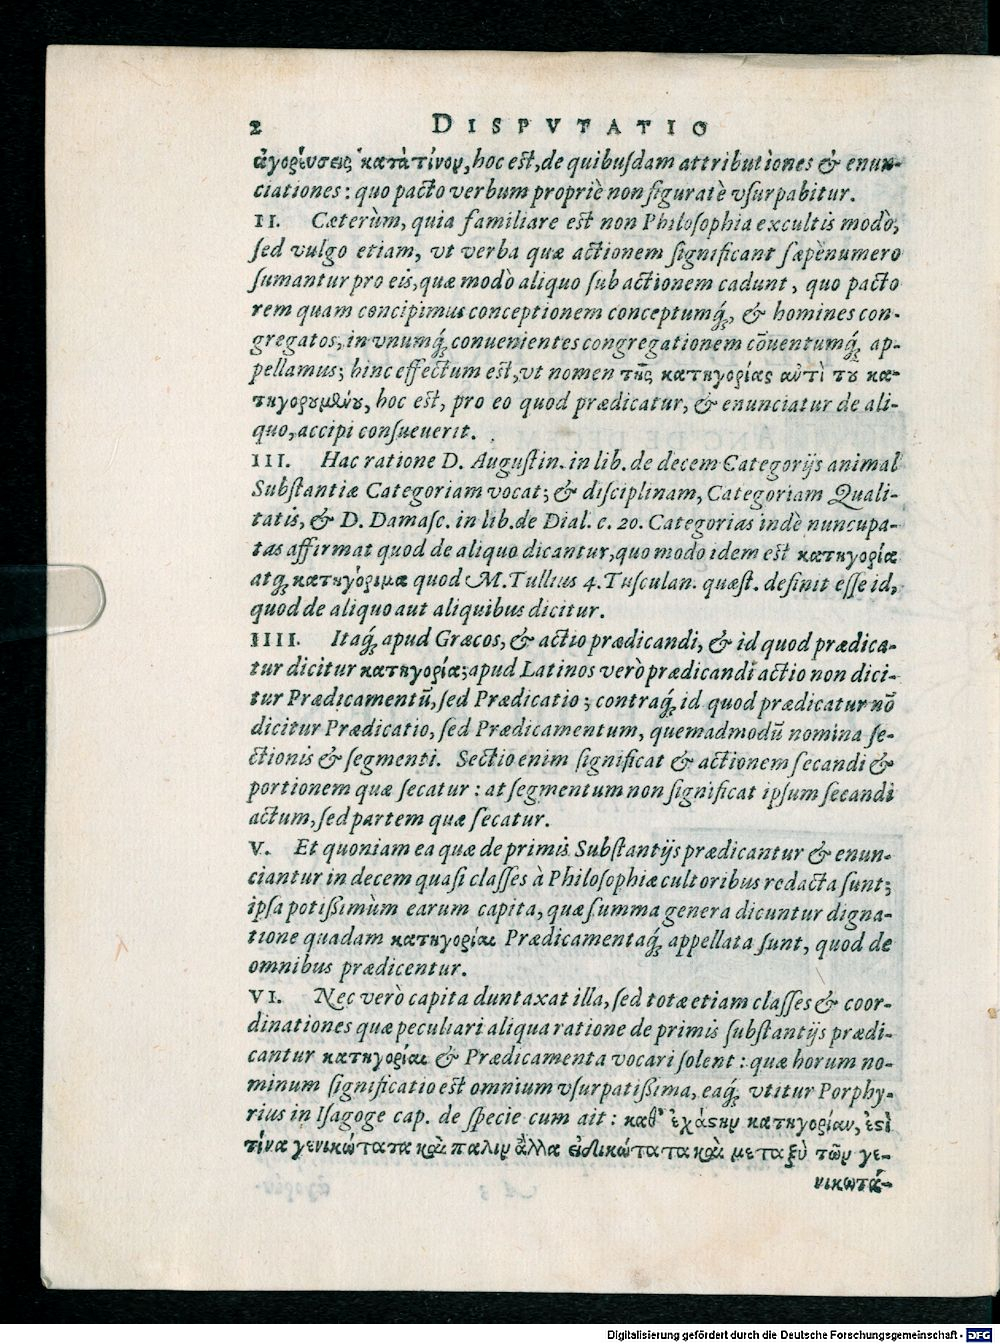 2 DISPVTATIO
ἀγορεύσεις κατὰ τίνον, hoc est, de quibusdam attributiones & enun-
ciationes: quo pacto verbum propriè non figuratè vsurpabitur.
II. Cæterùm, quia familiare est non Philosophia excultis modò,
sed vulgo etiam, vt verba quæ actionem significant sæpènumero
sumantur pro eis, quæ modò aliquo sub actionem cadunt, quo pacto
rem quam concipimus conceptionem conceptumq́;, & homines con-
gregatos, in vnumq́; conuenientes congregationem cōuentumq́; ap-
pellamus; hinc effectum est, vt nomen τῆς κατηγορίας αὐτὶ τȣ͂ κα-
τηγορȣμένȣ, hoc est, pro eo quod prædicatur, & enunciatur de ali-
quo, accipi consueuerit.
III. Hac ratione D. Augustin. in lib. de decem Categorijs animal
Substantiæ Categoriam vocat; & disciplinam, Categoriam Quali-
tatis, & D. Damasc. in lib. de Dial. c. 20. Categorias indè nuncupa-
tas affirmat quod de aliquo dicantur, quo modo idem est κατηγορία
atq́; κατηγόριμα quod M. Tullius 4. Tusculan. quæst. definit esse id,
quod de aliquo aut aliquibus dicitur.
IIII. Itaq́; apud Græcos, & actio prædicandi, & id quod prædica-
tur dicitur κατηγορία; apud Latinos verò prædicandi actio non dici-
tur Prædicamentū, sed Prædicatio; contraq́; id quod prædicatur nō
dicitur Prædicatio, sed Prædicamentum, quemadmodū nomina se-
ctionis & segmenti. Sectio enim significat & actionem secandi &
portionem quæ secatur: at segmentum non significat ipsum secandi
actum, sed partem quæ secatur.
V. Et quoniam ea quæ de primis Substantijs prædicantur & enun-
ciantur in decem quasi classes à Philosophiæ cultoribus redacta sunt;
ipsa potißimùm earum capita, quæ summa genera dicuntur digna-
tione quadam κατηγορίαι Prædicamentaq́; appellata sunt, quod de
omnibus prædicentur.
VI. Nec verò capita duntaxat illa, sed totæ etiam classes & coor-
dinationes quæ peculiari aliqua ratione de primis substantijs prædi-
cantur κατηγορίαι & Prædicamenta vocari solent: quæ horum no-
minum significatio est omnium vsurpatißima, eaq́; vtitur Porphy-
rius in Isagoge cap. de specie cum ait: καθ' ἑχάστην κατηγορίαν, ἐστὶ
τίνα γενικώτατα καὶ παλιν ἄλλα εἰδικώτατα καὶ μεταξὺ τῶν γε-
νικωτά-
Digitalisierung gefördert durch die Deutsche Forschungsgemeinschaft - DFG